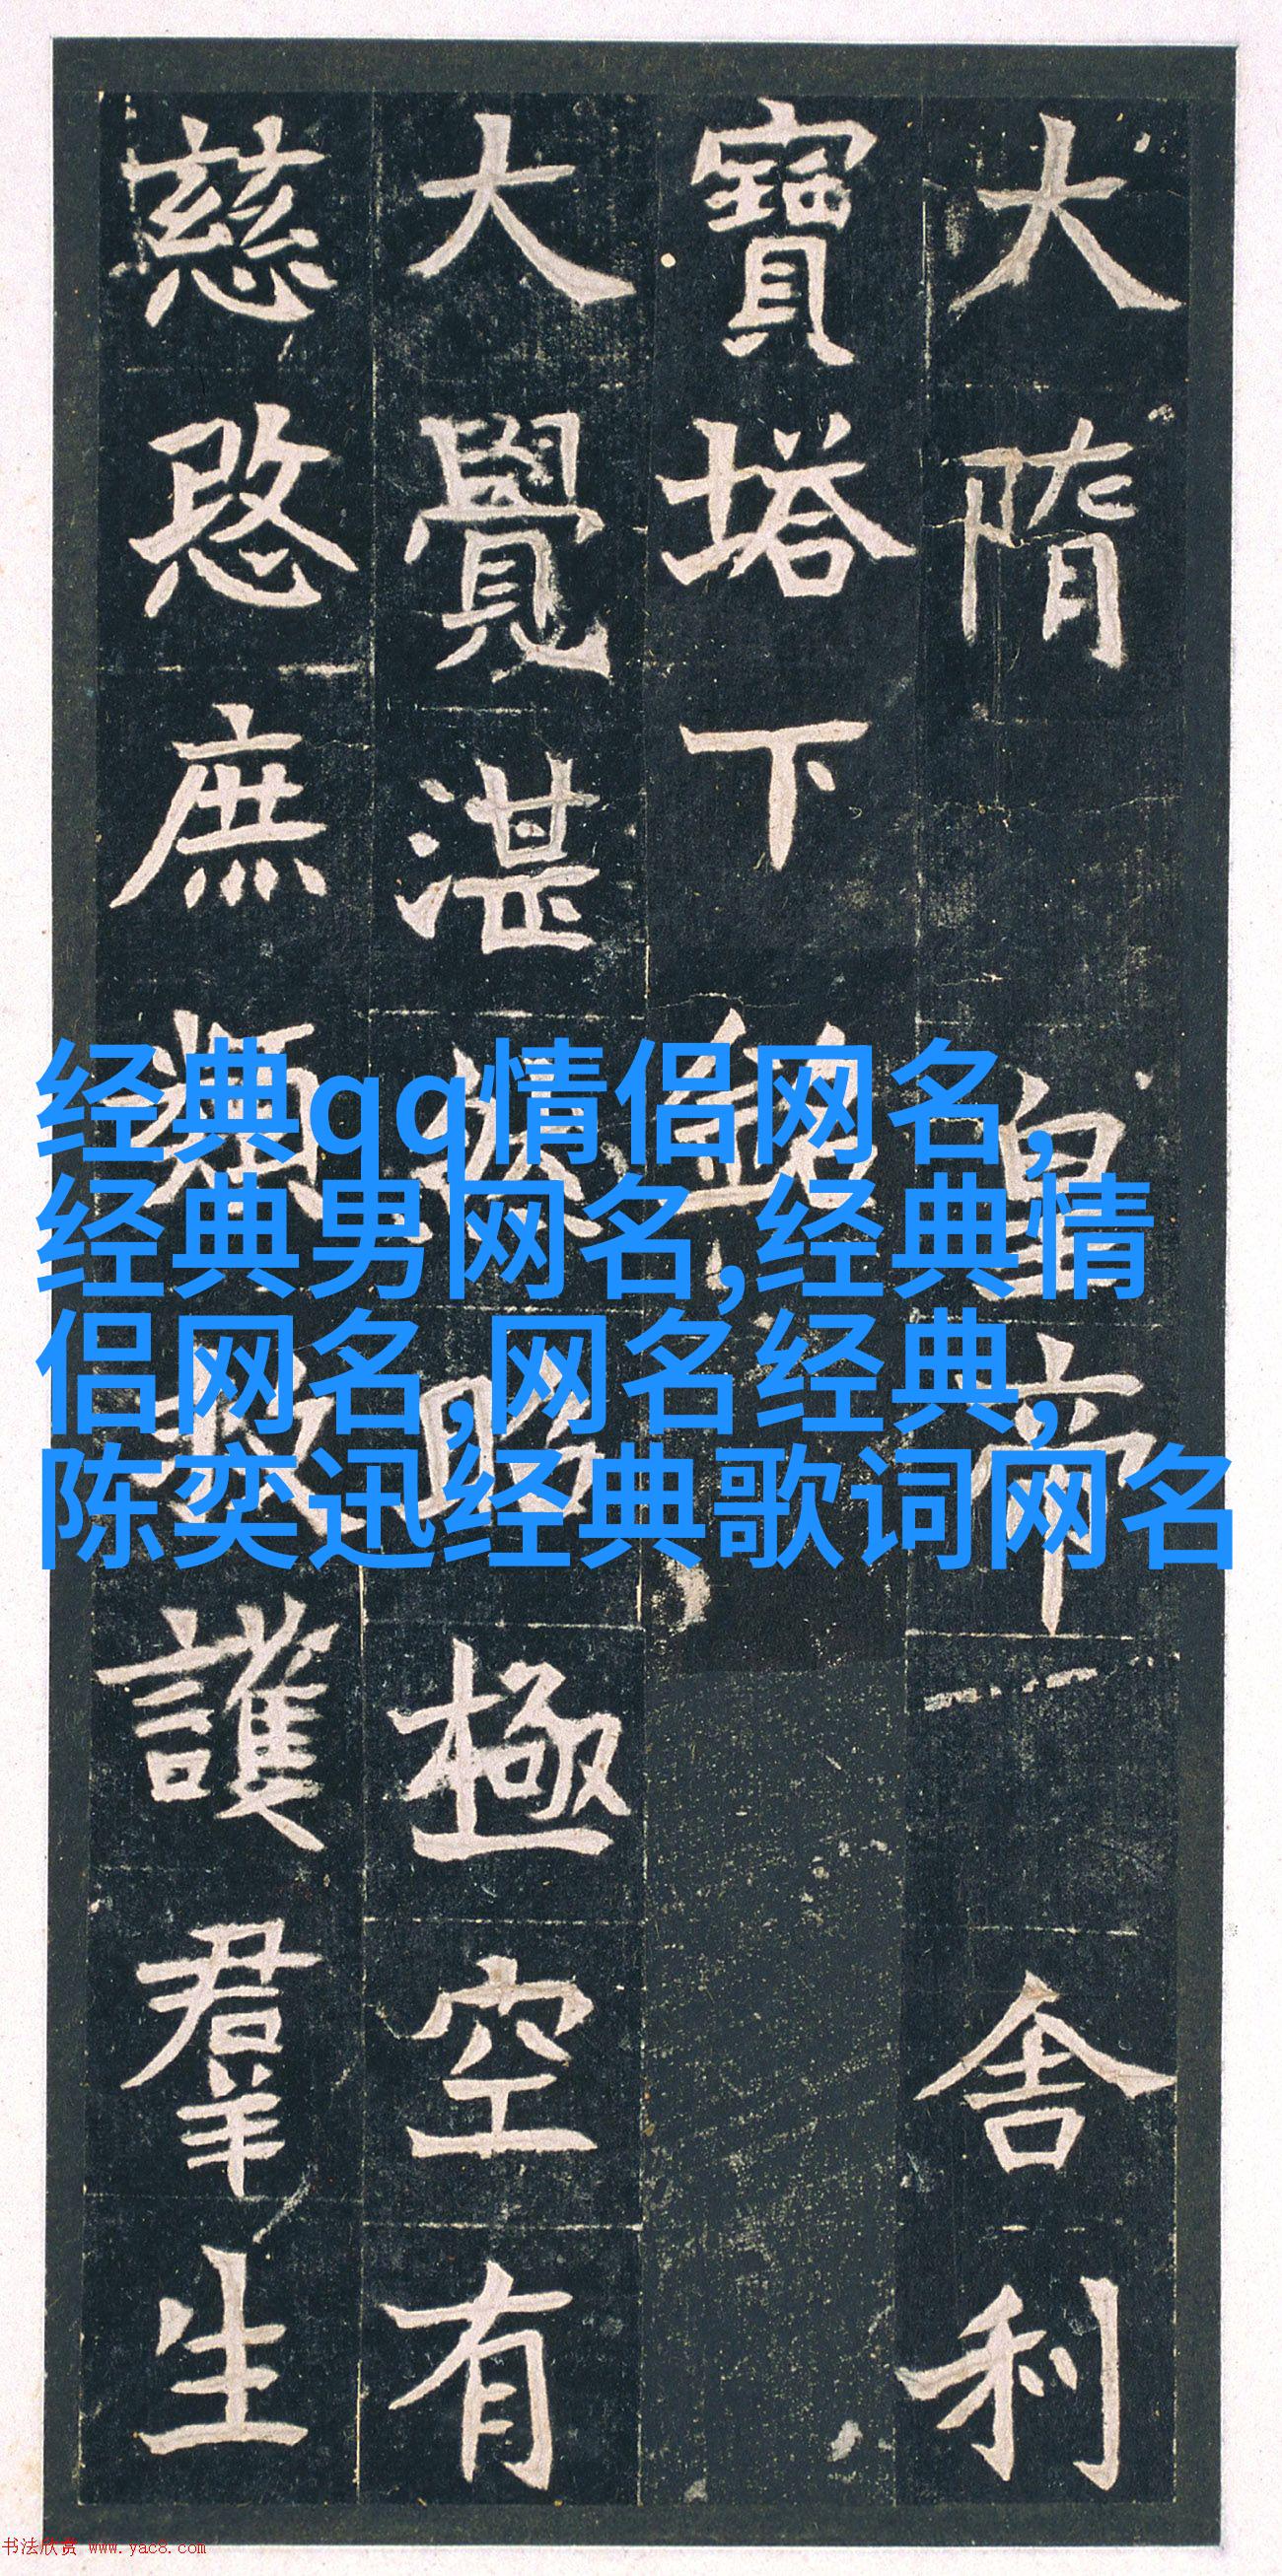 大隋皇帝舍利
寶塔下銘
大覺湛然昭極空有
慈愍庶類救護羣生
经典qq情侣网名,
经典男网名,经典情
侣网名,网名经典,
陈奕迅经典歌词网名
书法欣赏 www.yac8.com